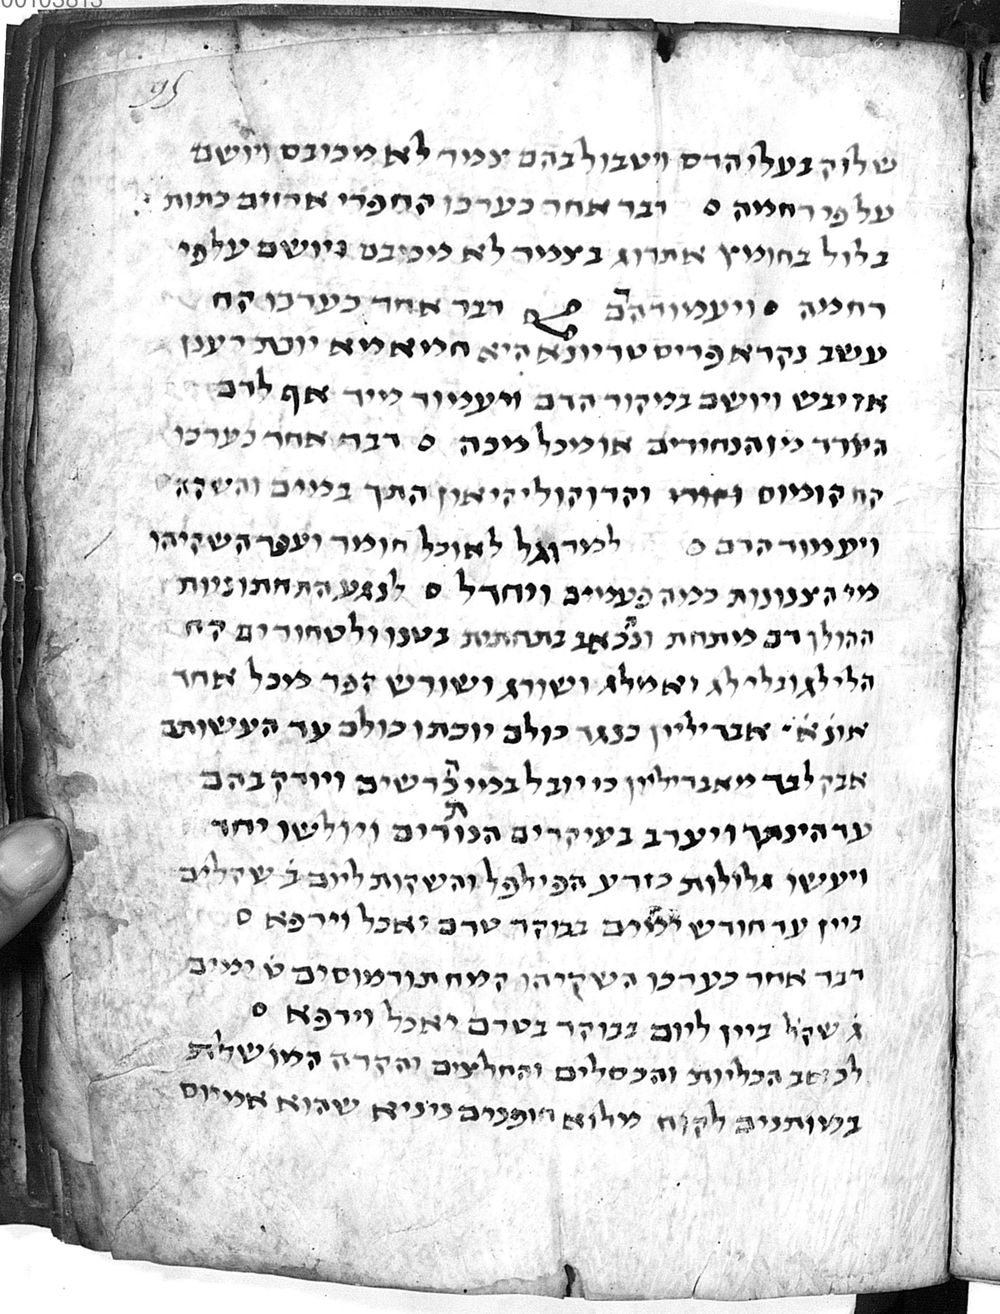 00103813
95
שלוק בעלי הדס ויטבול בהם צמר לא מכובס ויושם
על פי רחמה ס דבר אחר כערכו קח פרי ארזים כתות
בלול בחומץ אתרוג בצמר לא מכובס ויושם על פי
רחמה ס ויעמוד הדם ס דבר אחר כערכו קח
עשב נקרא פריסטריונא היא חמאמא יוכת רענן
או יבש ויושם במקור הדם ויעמוד מייד אף לדם
היורד מן הנחורים או מכל מכה ס דבר אחר כערכו
קח קומוס וקרוקוליקיאון התך במים והשקה
ויעמוד הדם ס למרוגל לאוכל חומר ועפר השקיהו
מי הצנונות כמה פעמים ויחדל ס לנגע התחתוניות
ההולך דם מתחת ונכאב בתחתית בטנו ולטחורים קח
הלילג ובלילג ואמלג ושורג ושורש קפר מכל אחד
אונ׳ א׳ אבדיליון כנגד כולם יוכתו כולם עד העשותם
אבק לבד מאבדיליון כי יובל במי כרשים ויודק בהם
עד הינתך ויערב בעיקרים הכתותים ויולשו יחד
ויעשו גלולות כזרע הפילפל והשקות ליום ב׳ שקלים
ביין עד חודש ימים בבוקר טרם יאכל וירפא ס
דבר אחר כערכו השקיהו קמח תורמוסים ט׳ ימים
ג׳ שקל ביין ליום בבוקר בטרם יאכל וירפא ס
לכאב הכליות והכסלים והחלצים והקרה המושלת
במותנים לקוח מלוא חופנים ניניא שהוא אמיוס